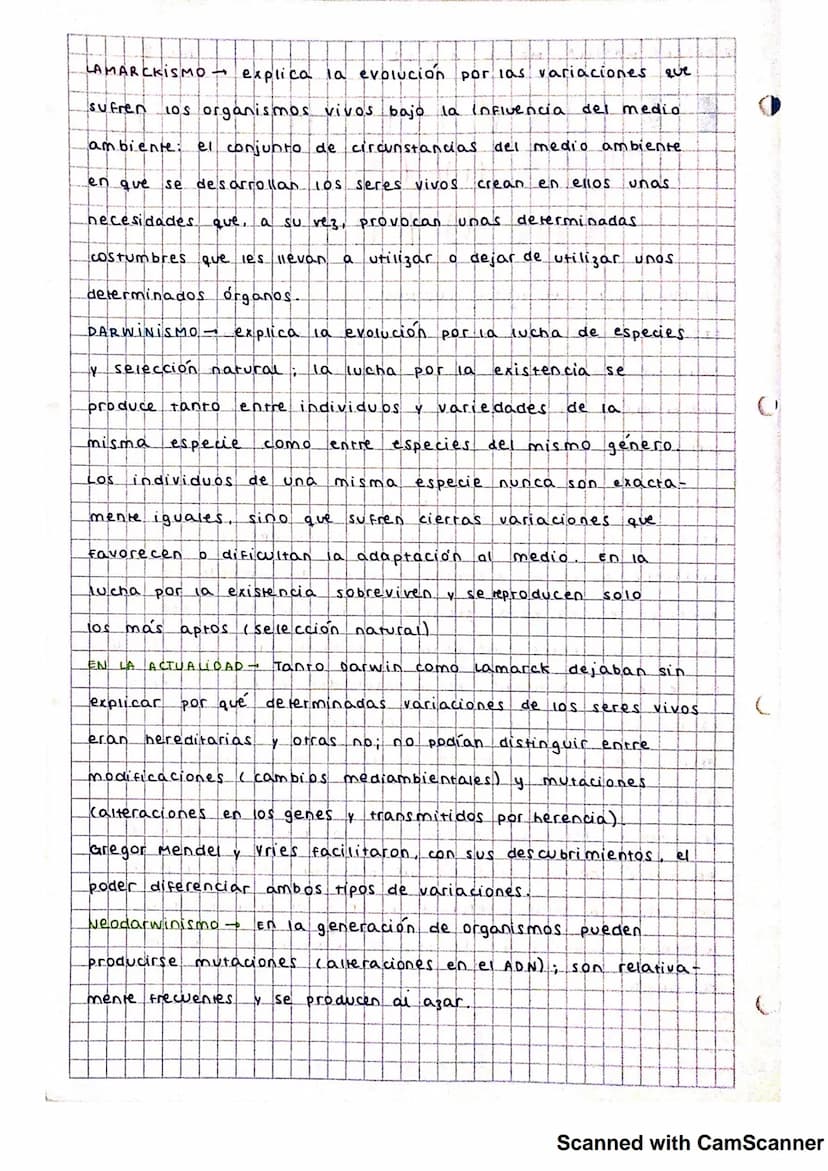 LAMARCKISMO → explica la evolución por las variaciones que
sufren los organismos vivos bajo la influencia del medio
ambiente: el conjunto de circunstancias del medio ambiente
en que se desarrollan los seres vivos crean en ellos unas
necesidades que, a su vez, provocan unas determinadas
costumbres que les llevan a utilizar o dejar de utilizar unos
determinados órganos.
DARWINISMO → explica la evolución por la lucha de especies
y selección natural; la lucha por la existencia se
produce tanto entre individuos y variedades de la
misma especie como entre especies del mismo género.
Los individuos de una misma especie nunca son exacta-
mente iguales, sino que sufren ciertas variaciones que
favorecen o dificultan la adaptación al medio. En la
lucha por la existencia sobreviven y se reproducen solo
los más aptos (selección natural)
EN LA ACTUALIDAD → Tanto Darwin como Lamarck dejaban sin
explicar por qué determinadas variaciones de los seres vivos
eran hereditarias y otras no; no podían distinguir entre
modificaciones (cambios mediambientales) y mutaciones
(alteraciones en los genes y transmitidos por herencia).
Gregor Mendel y Vries facilitaron, con sus descubrimientos, el
poder diferenciar ambos tipos de variaciones.
Neodarwinismo → En la generación de organismos pueden
producirse mutaciones (alteraciones en el ADN); son relativa-
mente frecuentes y se producen al azar.
Scanned with CamScanner